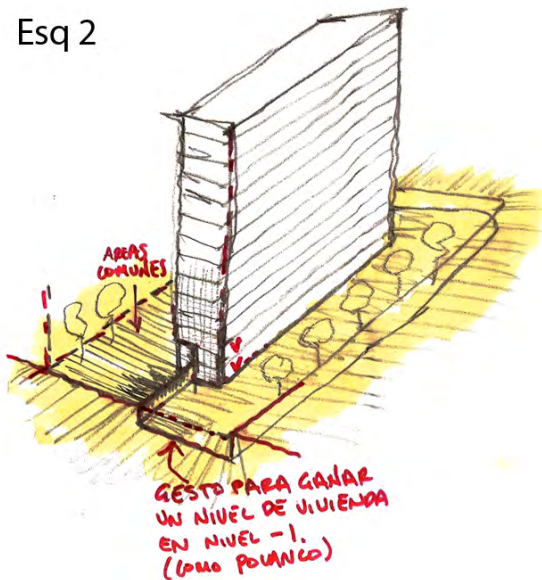 Esq 2
AREAS
COMUNES
GESTO PARA GANAR
UN NIVEL DE VIVIENDA
EN NIVEL -1.
(COMO POLANCO)